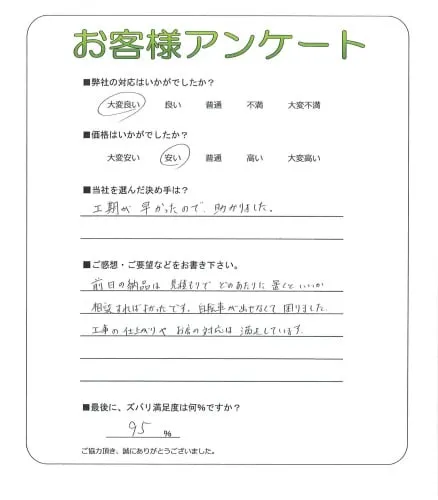 お客様アンケート
■弊社の対応はいかがでしたか?
大変良い 良い 普通 不満 大変不満
■価格はいかがでしたか?
大変安い 安い 普通 高い 大変高い
■当社を選んだ決め手は?
工期が早かったので、助かりました。
■ご感想・ご要望などをお書き下さい。
前日の納品は見積もりでどのあたりに置くといいか
相談すればよかったです。自転車が出せなくて困りました
工事の仕上がりやお店の対応は満足しています。
■最後に、ズバリ満足度は何%ですか?
95 %
ご協力頂き、誠にありがとうございました。